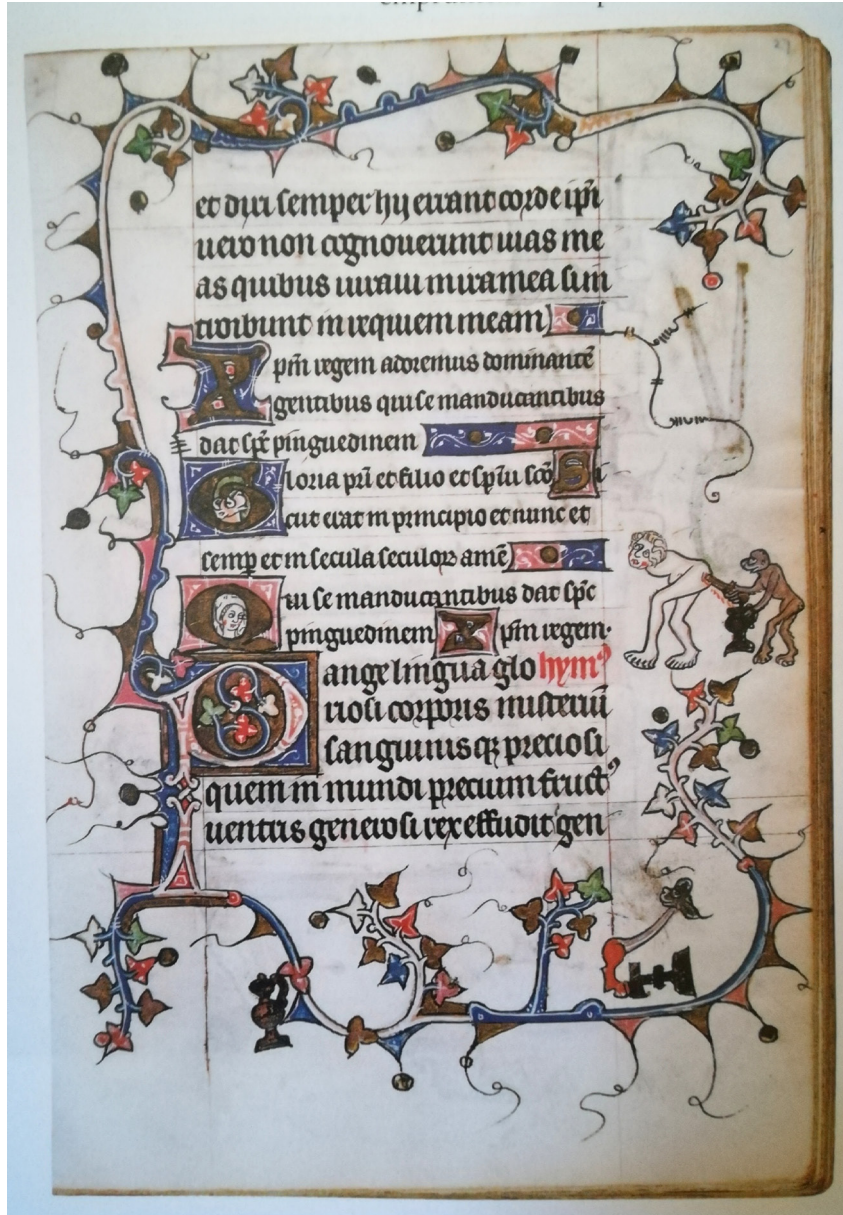 et duri semper hii errant corde ip̄i
uero non cognouerunt uias me
as quibus iuraui in ira mea si in
troibunt in requiem meam
Xp̄m regem adoremus dominantē
gentibus qui se manducantibus
dat sp̄c pinguedinem
Gloria pr̄i et filio et sp̄iu sc̄o Si
cut erat in principio et nunc et
semp̄ et in secula seculoꝝ amē
Qui se manducantibus dat sp̄c
pinguedinem Xp̄m regem
Pange lingua glo hymꝰ
riosi corporis misteriū
sanguinis qꝫ preciosi
quem in mundi precium fructꝰ
uentris generosi rex effudit gen